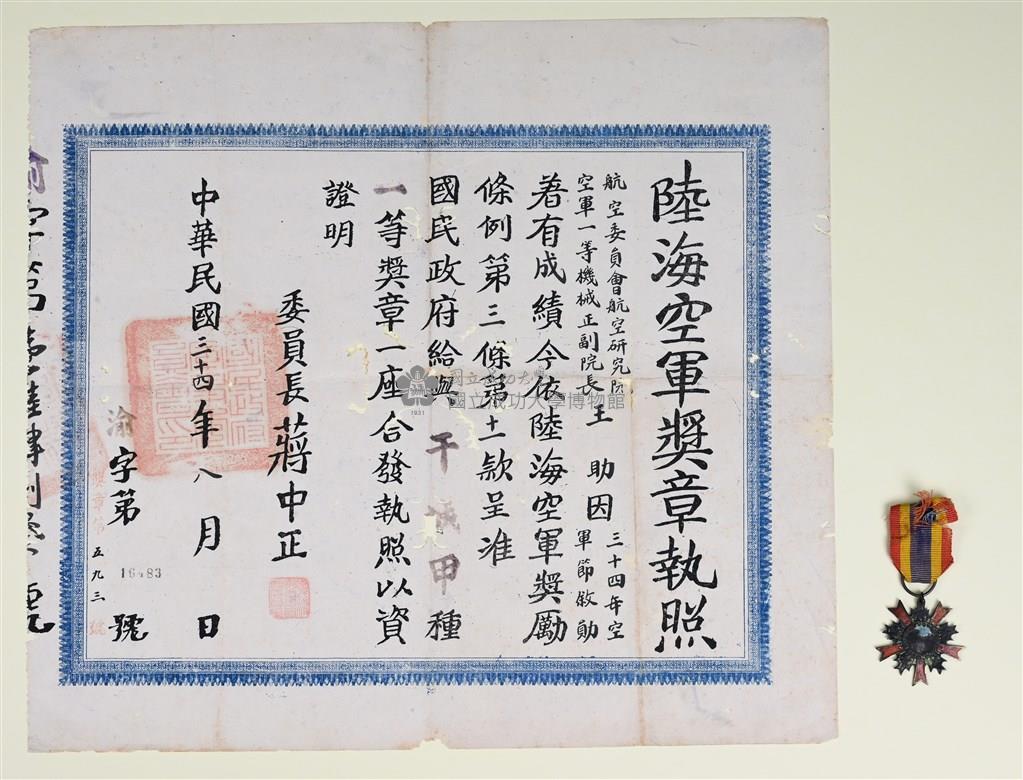 陸海空軍獎章執照
航空委員會航空研究院
空軍一等機械正副院長王助因三十四年空
軍節敘勛
著有成績今依陸海空軍獎勵
條例第三條第十一款呈准
國民政府給與干城甲種
一等獎章一座合發執照以資
證明
委員長蔣中正
中華民國三十四年八月日
渝字第16483號
獎章第五九三號
國立成功大學博物館
1931